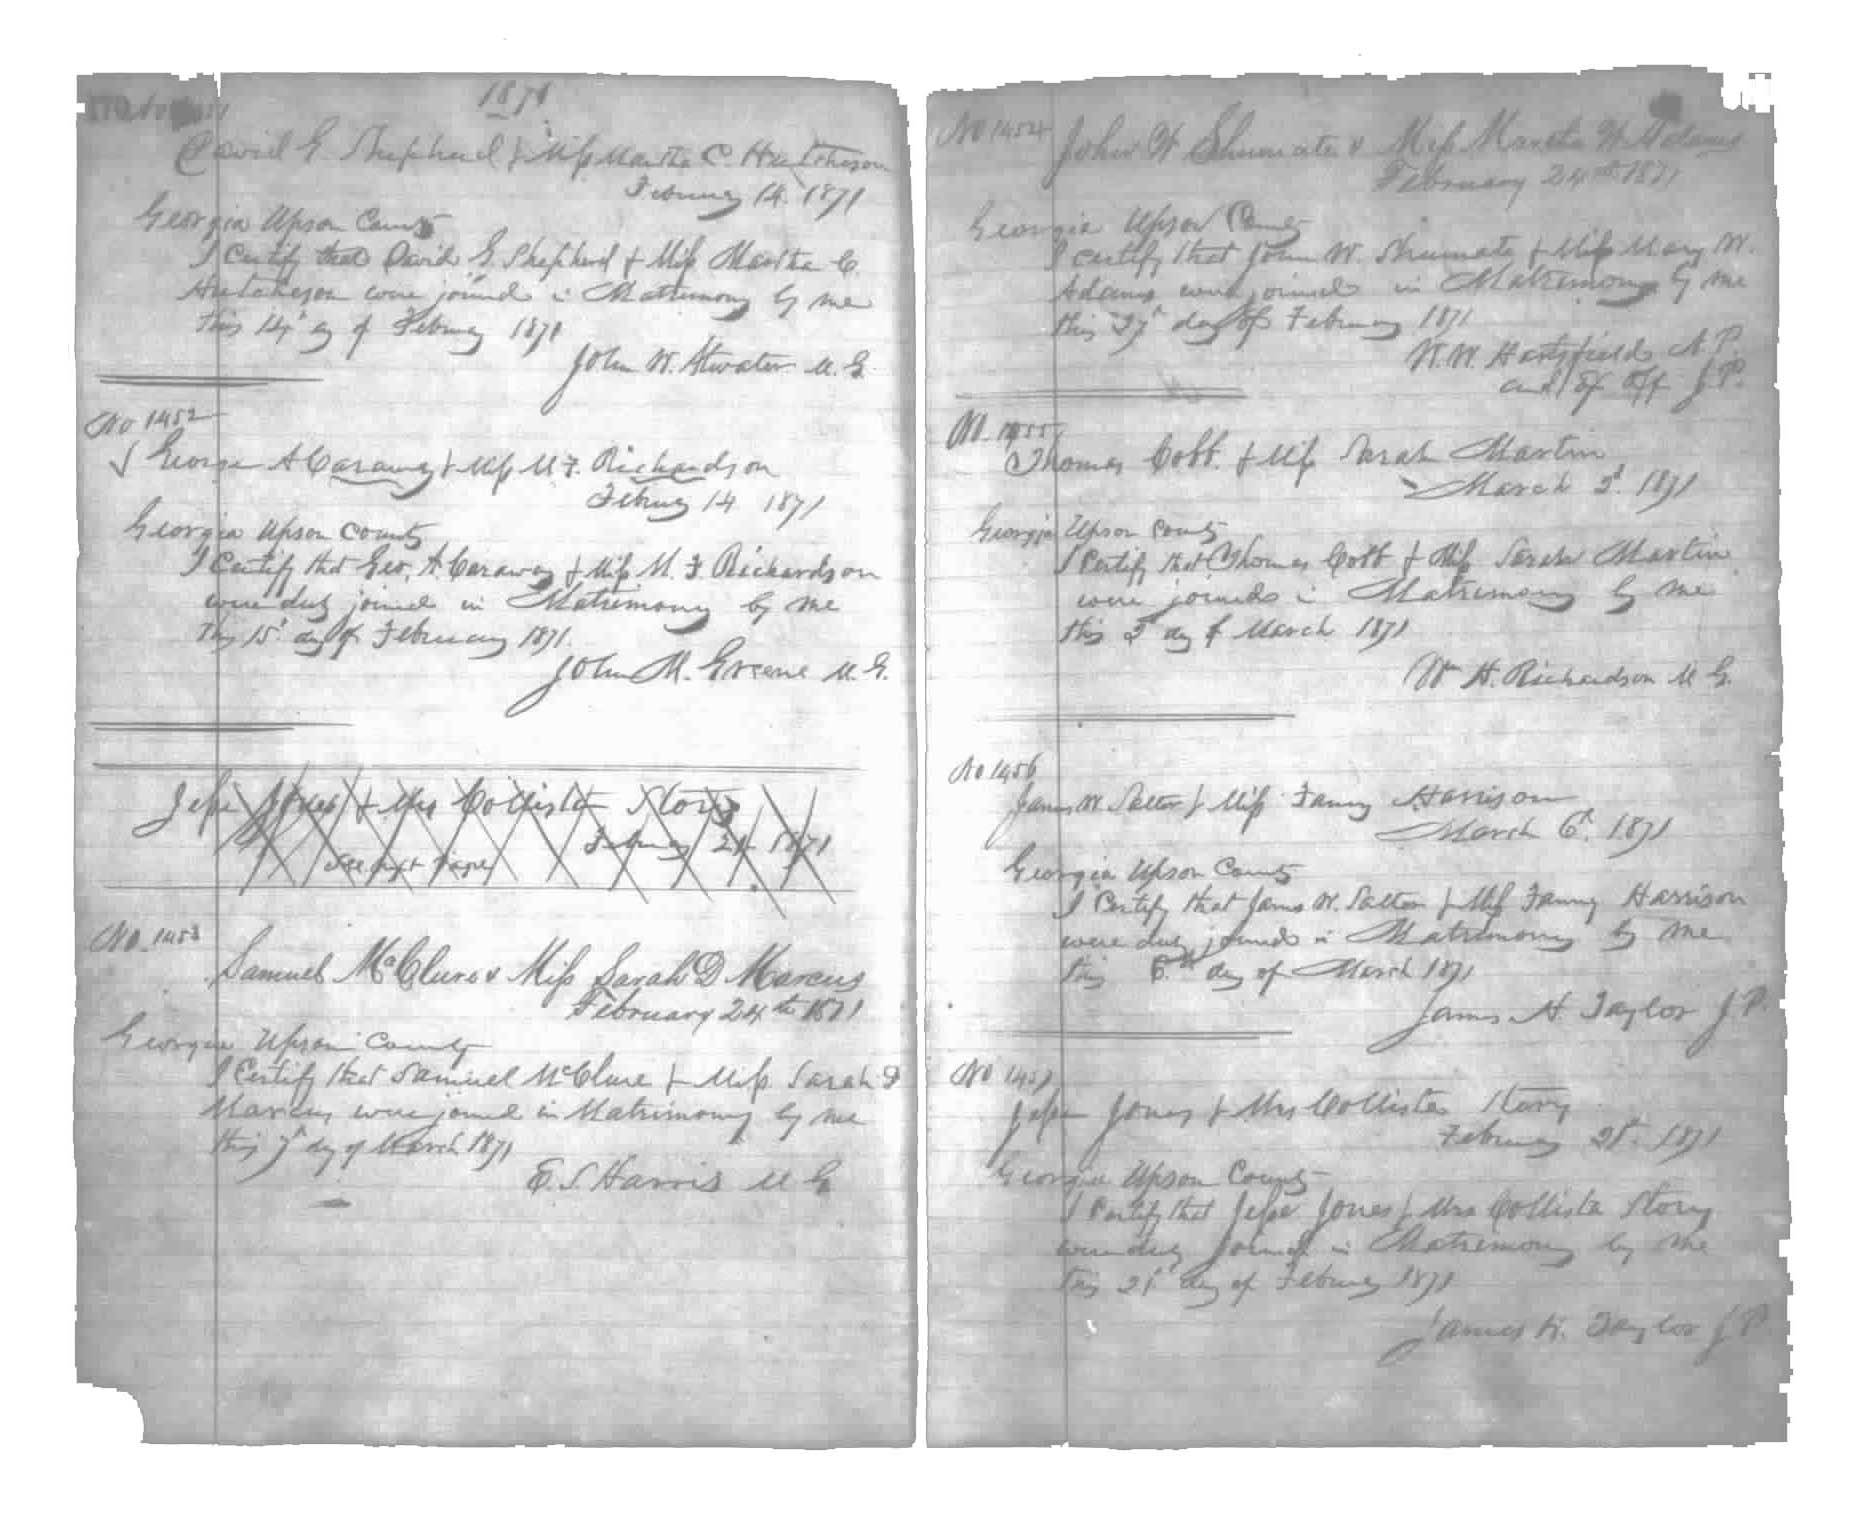 1871
David G. Shepherd & Miss Martha C. Hutcheson
February 14. 1871
Georgia Upson County
I Certify that David G. Shepherd & Miss Martha C.
Hutcheson were joined in Matrimony by me
this 14th day of February 1871
John W. Atwater M. G.
No 1452
George A Caraway & Miss M. F. Richardson
February 14 1871
Georgia Upson County
I Certify that Geo. A. Caraway & Miss M. F Richardson
were duly joined in Matrimony by me
this 15th day of February 1871.
John M. Greene M. G.
Jesse Jones & Mrs Collista Story
February 21 1871
See next page
No. 1453
Samuel McClure & Miss Sarah D Marcus
February 24th 1871
Georgia Upson County
I Certify that Samuel McClure & Miss Sarah D
Marcus were joined in Matrimony by me
this 7th day of March 1871
E. S. Harris M G
No 1454
John W Shumate & Miss Martha W Adams
February 24th 1871
Georgia Upson County
I certify that John W. Shumate & Miss Mary W.
Adams were joined in Matrimony by me
this 27th day of February 1871
W. W. Hartsfield N. P.
and Ex Off J. P.
No. 1455
Thomas Cobb. & Miss Sarah Martin
March 2d. 1871
Georgia Upson County
I Certify that Thomas Cobb & Miss Sarah Martin
were joined in Matrimony by me
this 2d day of March 1871
Wm H. Richardson M G.
No 1456
James W. Salter & Miss Fanny Harrison
March 6th. 1871
Georgia Upson County
I Certify that James W. Salter & Miss Fanny Harrison
were duly joined in Matrimony by me
this 6th day of March 1871
James H. Taylor J. P.
No 1457
Jesse Jones & Mrs Collista Story
February 21st. 1871
Georgia Upson County
I Certify that Jesse Jones & Mrs Collista Story
were duly joined in Matrimony by me
this 21st day of February 1871
James H. Taylor J P